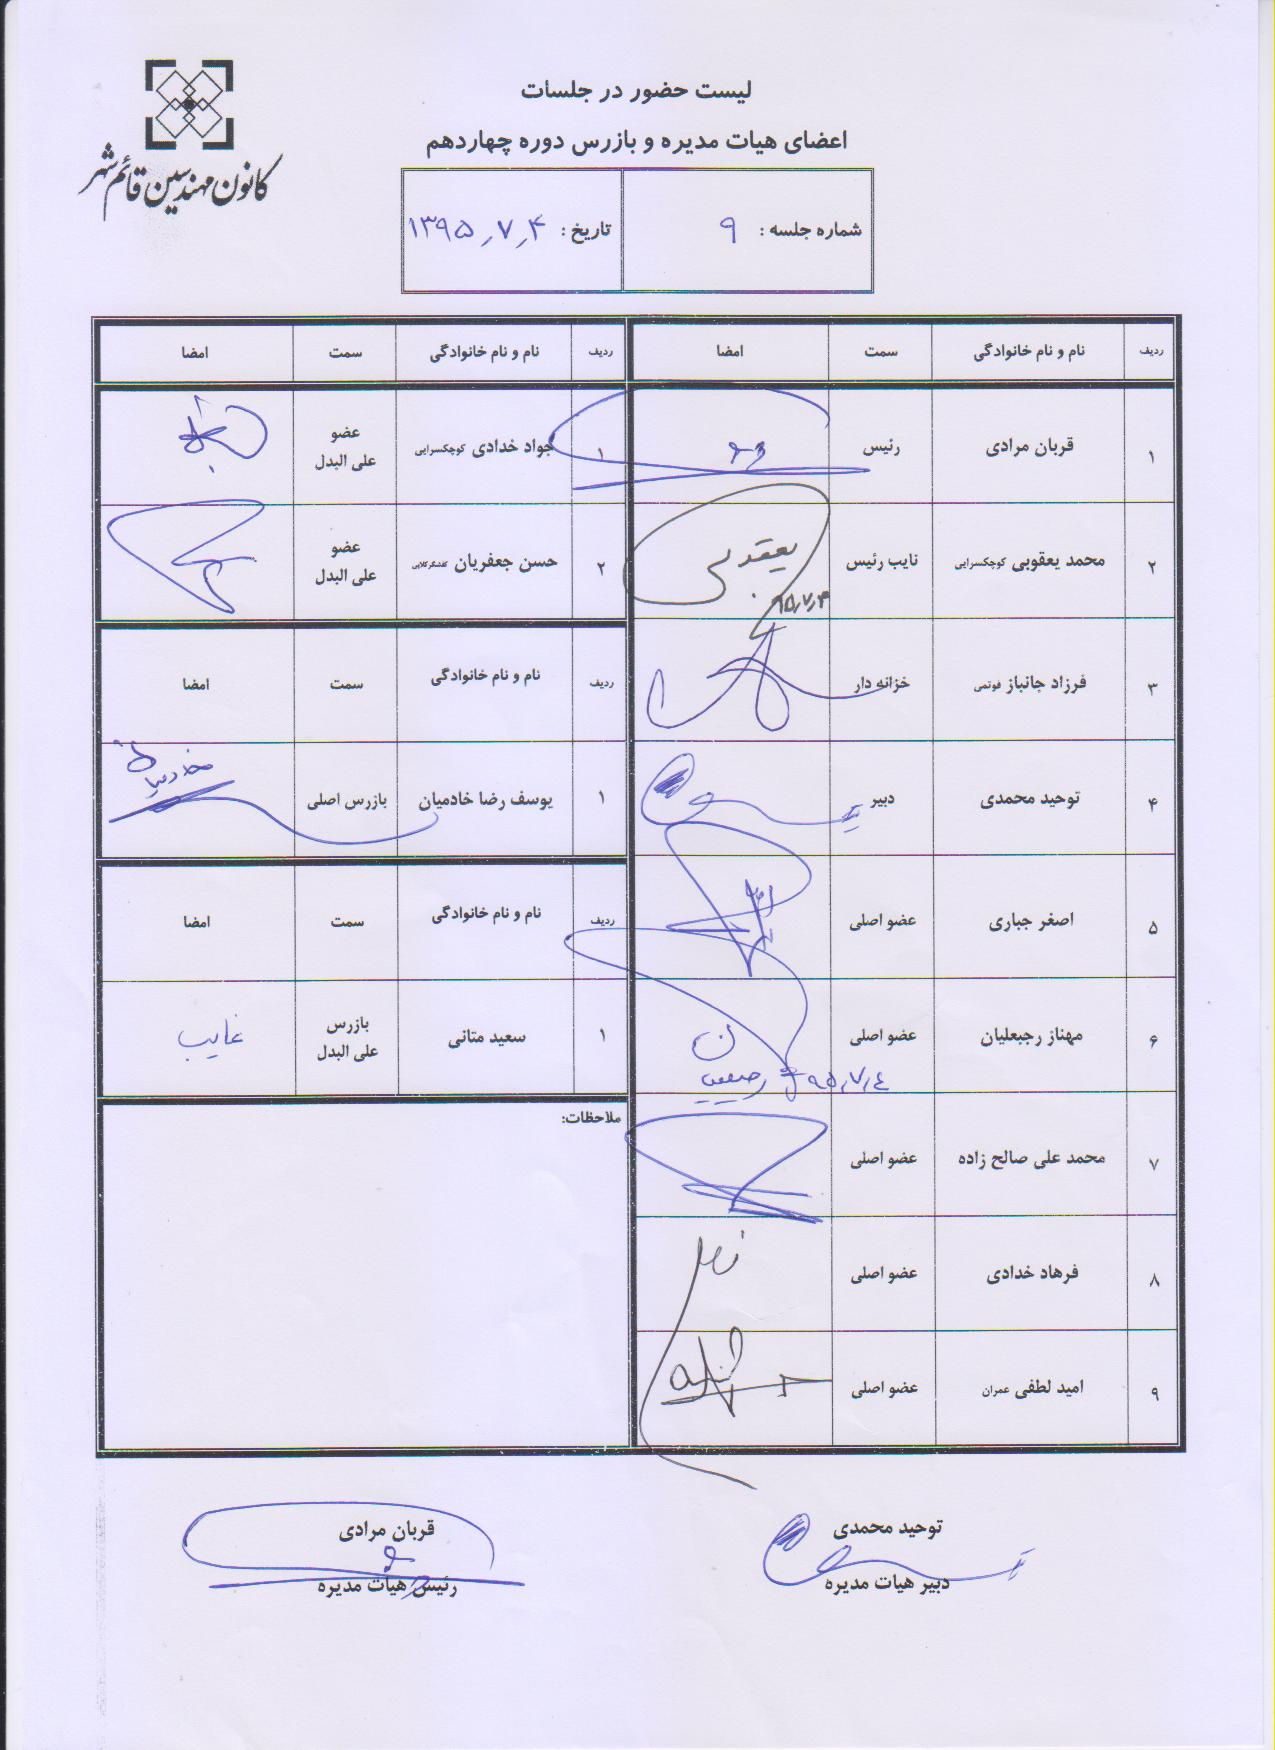 کانون مهندسین قائم شهر
لیست حضور در جلسات
اعضای هیات مدیره و بازرس دوره چهاردهم
شماره جلسه : ۹
تاریخ : ۱۳۹۵٫۷٫۴
ردیف نام و نام خانوادگی سمت امضا
۱ قربان مرادی رئیس
۲ محمد یعقوبی کوچکسرایی نایب رئیس یعقوبی
۹۵٫۷٫۴
۳ فرزاد جانباز فوتمی خزانه دار
۴ توحید محمدی دبیر
۵ اصغر جباری عضو اصلی
۶ مهناز رجبعلیان عضو اصلی
۹۵٫۷٫٤
۷ محمد علی صالح زاده عضو اصلی
۸ فرهاد خدادی عضو اصلی
۹ امید لطفی عمران عضو اصلی
ردیف نام و نام خانوادگی سمت امضا
۱ جواد خدادی کوچکسرایی عضو
علی البدل
۲ حسن جعفریان کفشگرکلایی عضو
علی البدل
ردیف نام و نام خانوادگی سمت امضا
۱ یوسف رضا خادمیان بازرس اصلی
ردیف نام و نام خانوادگی سمت امضا
۱ سعید متانی بازرس
علی البدل
غایب
ملاحظات:
توحید محمدی
دبیر هیات مدیره
قربان مرادی
رئیس هیات مدیره